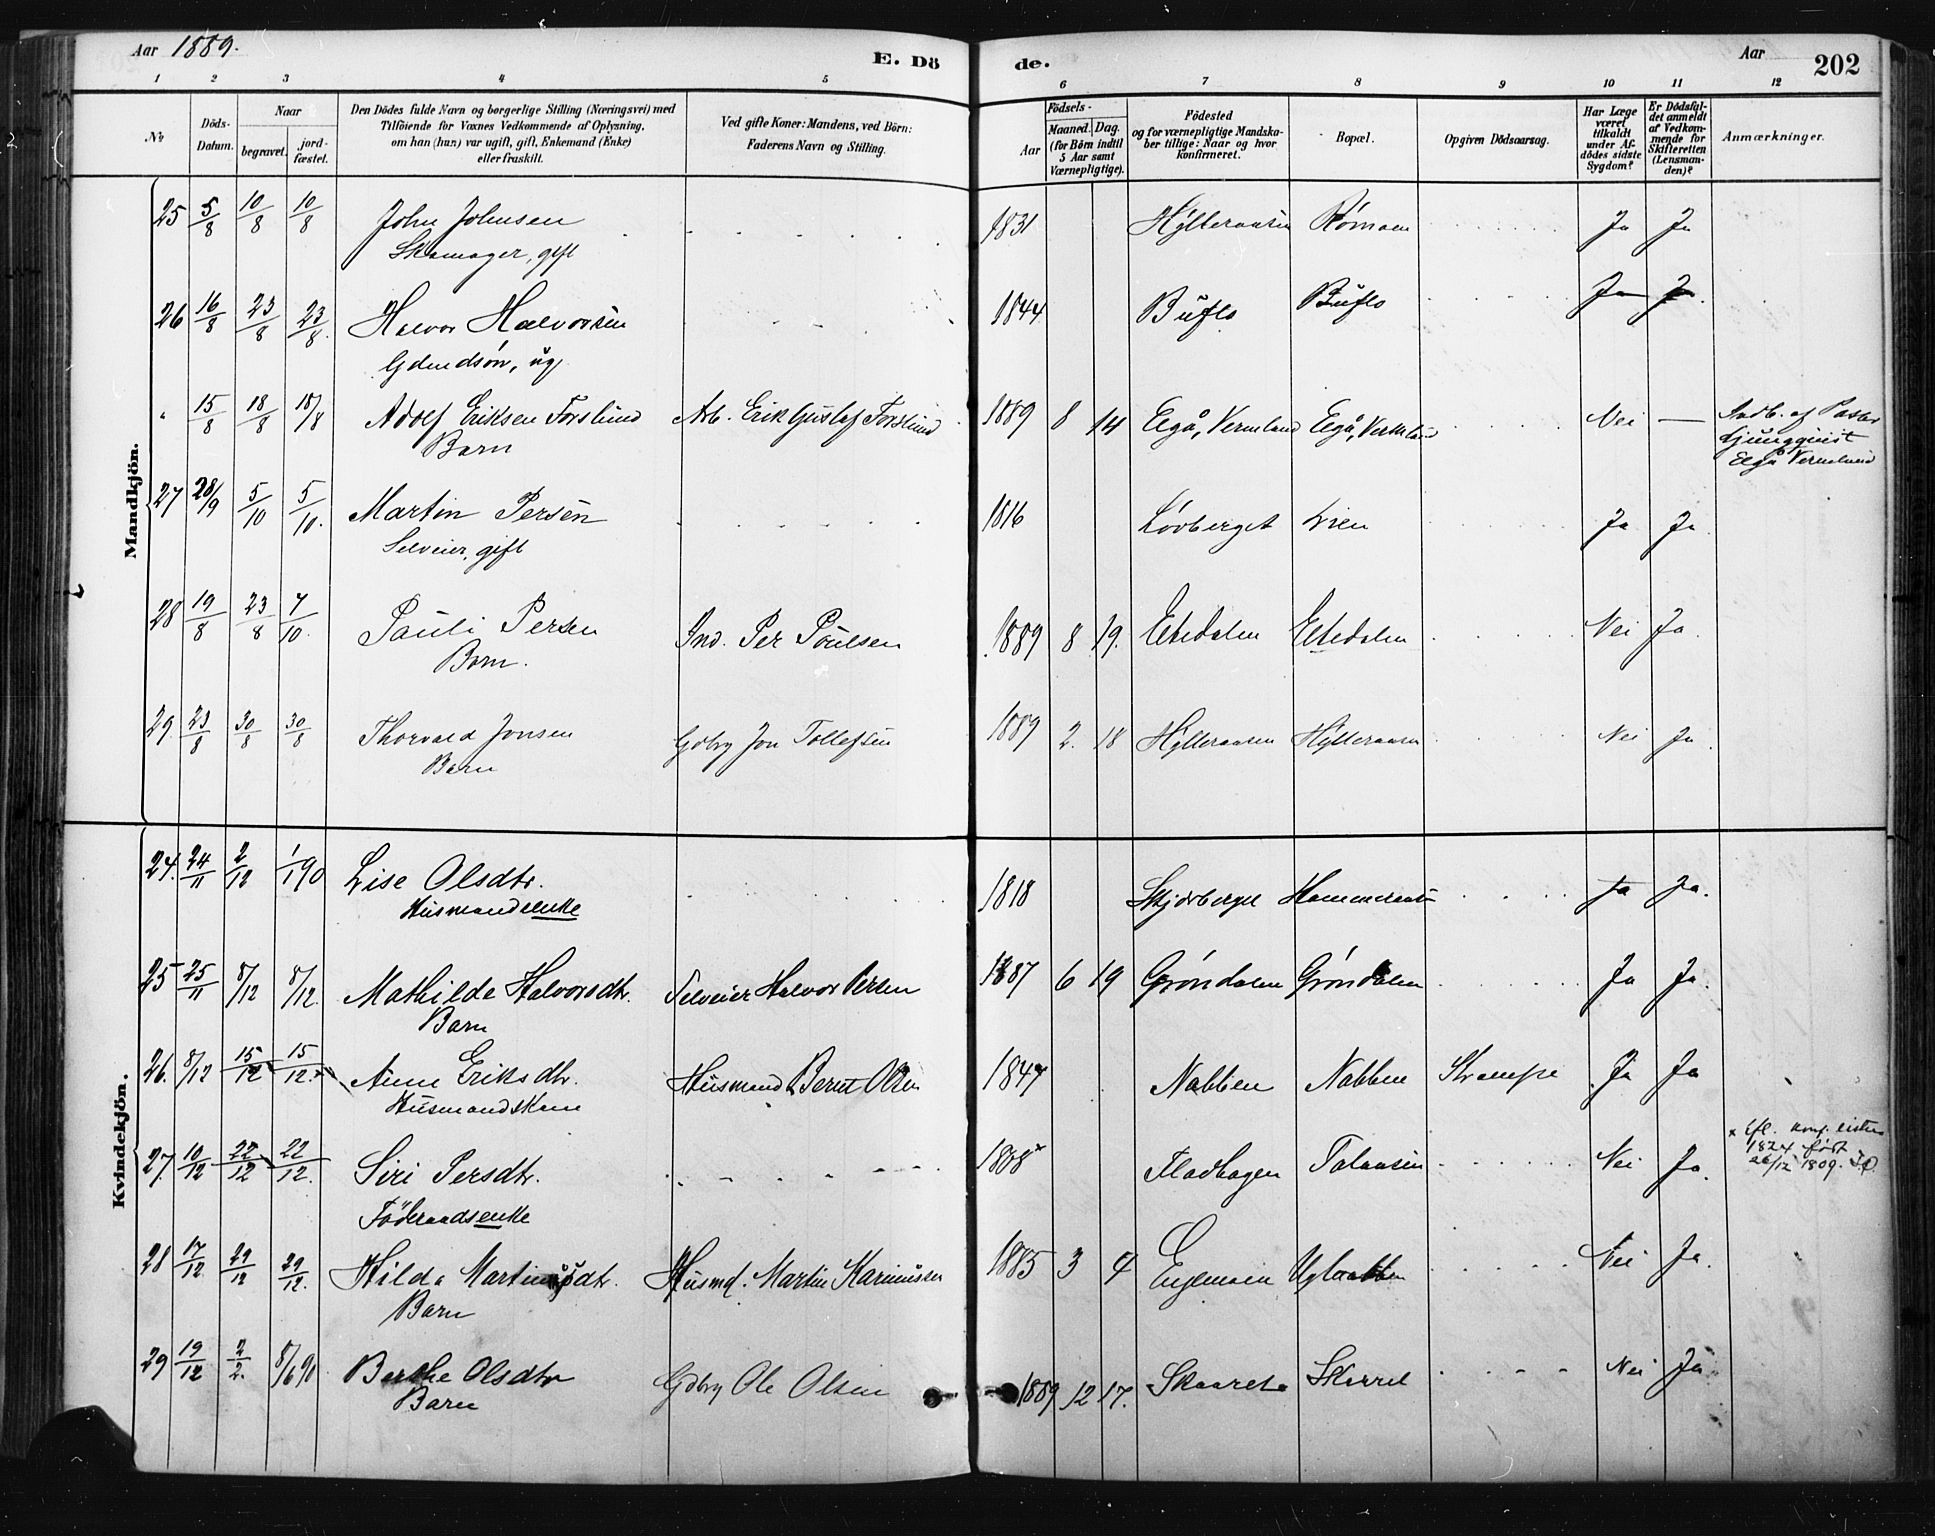 Aar 1889.
E. Dö
de.
Aar
202
1 2 3 4 5 6 7 8 9 10 11 12
No
Döds-Datum.
Naar
begravet.
jord-fæstet.
Den Dödes fulde Navn og borgerlige Stilling (Næringsvei) med
Tilföiende for Voxnes Vedkommende af Oplysning,
om han (hun) var ugift, gift, Enkemand (Enke)
eller fraskilt.
Ved gifte Koner: Mandens, ved Börn:
Faderens Navn og Stilling.
Födsels-
Aar
Maaned. Dag.
(for Börn indtil
5 Aar samt
Værnepligtige).
Födested
og for værnepligtige Mandska-
ber tillige: Naar og hvor
konfirmeret.
Bopæl.
Opgiven Dödsaarsag.
Har Læge
været
tilkaldt
under Af-
dödes sidste
Sygdom?
Er Dödsfal-
det anmeldt
af Vedkom-
mende for
Skifteretten
(Lensman-
den)?
Anmærkninger.
Mandkjön.
25 5/8 10/8 10/8 John Johnsen 1831 Hylleraasen Römoen Ja Ja
Skomager, gift
26 16/8 23/8 23/8. Halvor Halvorsen 1844 Buflo Buflo Ja Ja.
Gdmdsön, ug
" 15/8 18/8 18/8 Adolf Eriksen Forslund Arb. Erik Gustaf Forslund 1889 8 14 Elgå, Vermland Elgå, Vermland Nei — Indb. af Pastor
Barn Ljungquist
Elgå Vermland
27 28/9 5/10 5/10. Martin Persen 1816 Lövberget Lien Ja Ja
Selveier, gift
28 19/8 23/8 7/10. Pauli Persen Ind. Per Poulsen 1889 8 19. Eltedalen Eltedalen Nei Ja.
Barn.
29. 23/8 30/8 30/8 Thorvald Jonsen Gdbrg Jon Tollefsen 1889 2. 18 Hylleraasen Hylleraasen Nei Ja.
Barn
Kvindekjön.
24. 24/11 2/12 1/1 90 Lise Olsdtr. 1818 Skjærberget Hammeraasen Ja Ja.
Husmandsenke
25 25/11 8/12 8/12. Mathilde Halvorsdtr. Selveier Halvor Persen 1887 6 19 Gröndalen Gröndalen Ja Ja.
Barn
26. 8/12 15/12 15/12. Anne Eriksdtr. Husmand Bernt Olsen 1847 Nabben Nabben Krampe Ja Ja
Husmandskone
27. 10/12 22/12 22/12. Siri Persdtr. 1808 x Fladhagen Nei Ja. x Efl. konf. listen
Föderaadsenke 1824 født
26/12 1809.
28 17/12 29/12 29/12. Hilda Martinusdtr. Husmd. Martin 1885 3 4 Engemoen Nei Ja.
Barn
29 19/12 2/2. 8/6 90 Berthe Olsdtr Gdbrg Ole Olsen 1889 12 17. Skaaret Skaaret Nei Ja
Barn